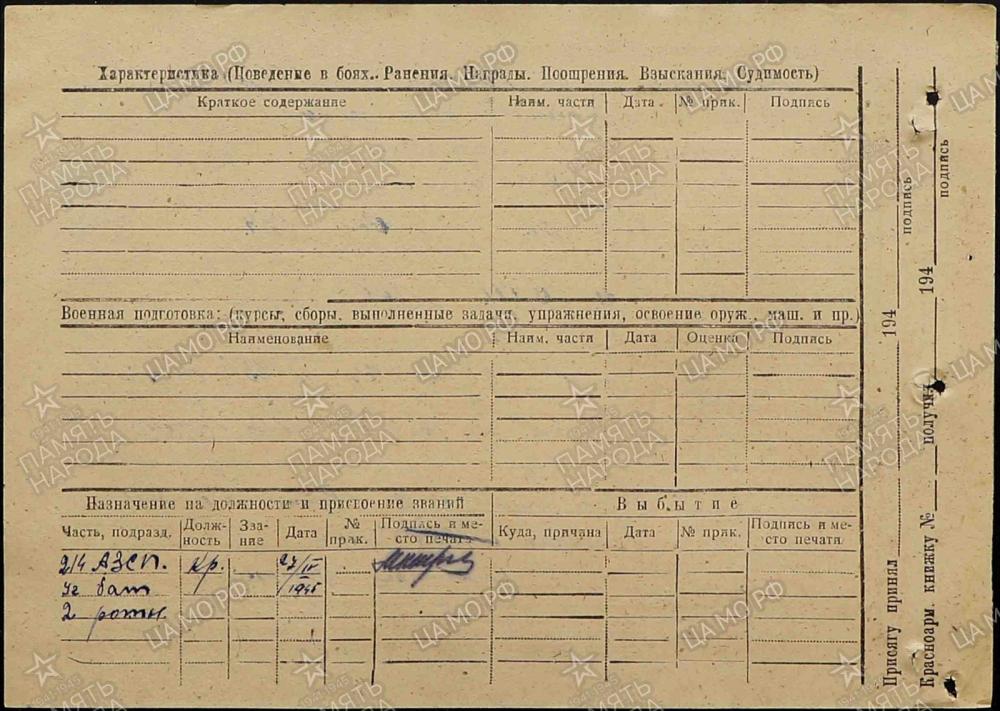 Характеристика (Поведение в боях. Ранения. Награды. Поощрения. Взыскания. Судимость)
Краткое содержание Наим. части Дата № прик. Подпись
Военная подготовка: (курсы, сборы, выполненные задачи, упражнения, освоение оруж., маш. и пр.)
Наименование Наим. части Дата Оценка Подпись
Назначение на должности и присвоение званий Выбытие
Часть, подразд. Долж-ность Зва-ние Дата № прик. Подпись и ме-сто печати Куда, причина Дата № прик. Подпись и ме-сто печати
214 АЗСП. кр. 27/IV
уч бат 1945
2 рота
Присягу принял 194 подпись
Красноарм. книжку № получил 194 подпись
ПАМЯТЬ НАРОДА
1941-1945
ЦАМО.РФ